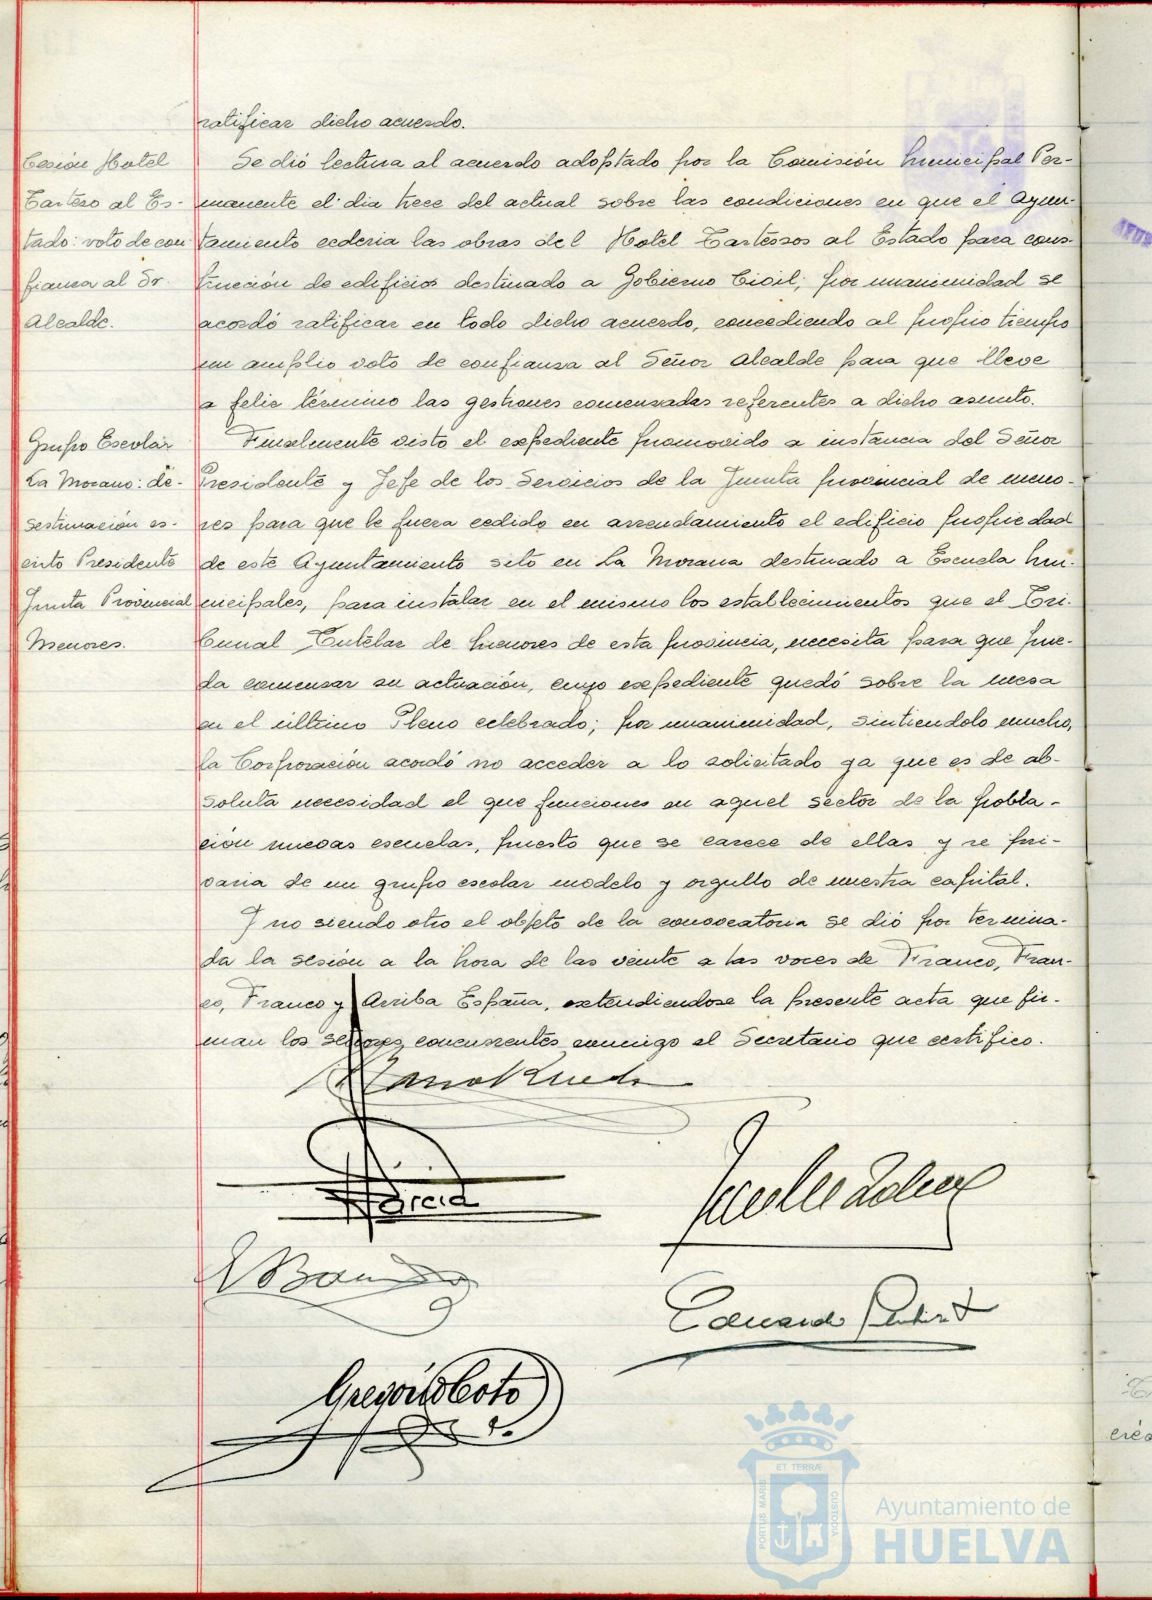 ratificar dicho acuerdo.
Cesión Hotel
Tarteso al Es-
tado: voto de con
fianza al Sr.
Alcalde.
Se dió lectura al acuerdo adoptado por la Comisión Municipal Per-
manente el dia trece del actual sobre las condiciones en que el Ayun-
tamiento cederia las obras del Hotel Tartessos al Estado para cons-
trucción de edificios destinado a Gobierno Civil; por unanimidad se
acordó ratificar en todo dicho acuerdo, concediendo al propio tiempo
un amplio voto de confianza al Señor Alcalde para que lleve
a feliz término las gestiones comenzadas referentes a dicho asunto.
Grupo Escolar
La Morano: de-
sestimación es-
crito Presidente
Junta Provincial
Menores.
Finalmente visto el expediente promovido a instancia del Señor
Presidente y Jefe de los Servicios de la Junta provincial de meno-
res para que le fuera cedido en arrendamiento el edificio propiedad
de este Ayuntamiento sito en La Morana destinado a Escuela Mu-
nicipales, para instalar en el mismo los establecimientos que el Tri-
bunal Tutelar de Menores de esta provincia, necesita para que pue-
da comenzar su actuación, cuyo expediente quedó sobre la mesa
en el último Pleno celebrado; por unanimidad, sintiendolo mucho,
la Corporación acordó no acceder a lo solicitado ya que es de ab-
soluta necesidad el que funciones en aquel sector de la pobla-
ción nuevas escuelas, puesto que se carece de ellas y se pri-
varia de un grupo escolar modelo y orgullo de nuestra capital.
Y no siendo otro el objeto de la convocatoria se dió por termina-
da la sesión a la hora de las veinte a las voces de Franco, Fran-
co, Franco y Arriba España, extendiendose la presente acta que fir-
man los señores concurrentes conmigo el Secretario que certifico.
García
Eduardo
Gregorio Coto
ET TERRÆ
PORTUS MARIS
CUSTODIA
Ayuntamiento de
HUELVA